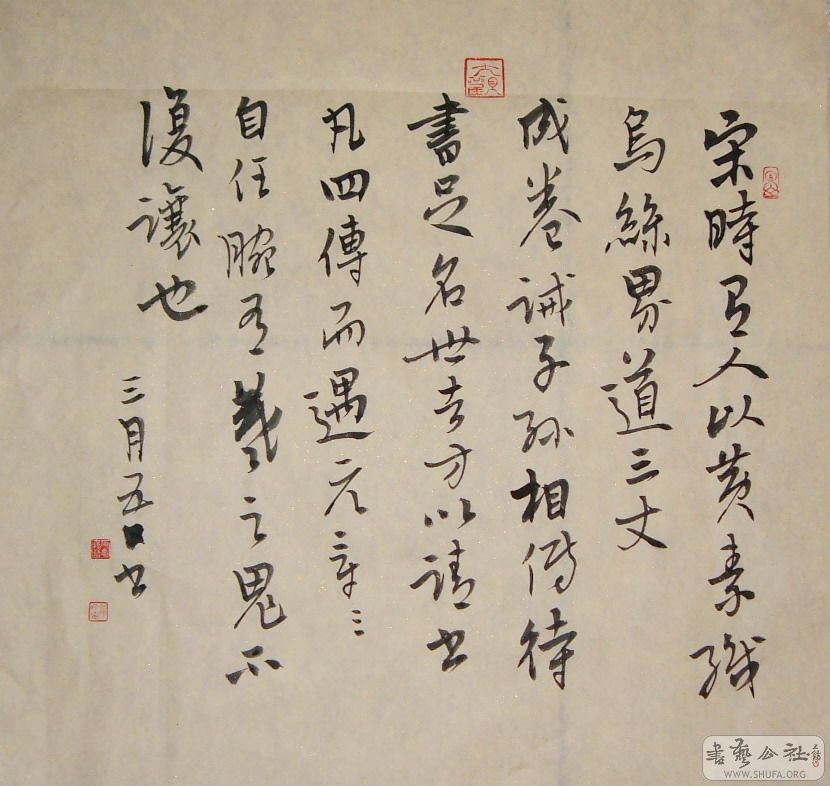 宋時有人以黃素織
烏絲界道三丈
成卷誡子孫相傳待
書足名世者方以請書
凡四傳而遇元〻章〻
自任腕有羲之鬼不
復讓也
三月五日書
書藝公社
WWW.SHUFA.ORG